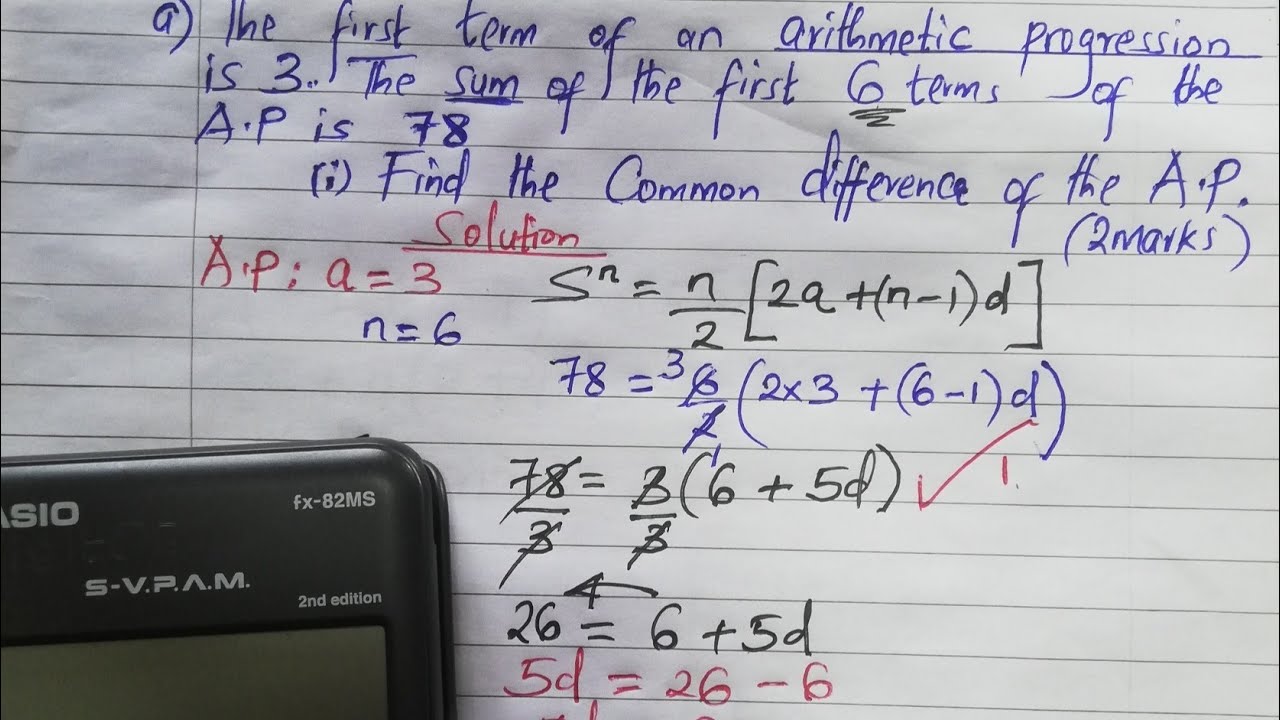 a) The first term of an arithmetic progression
is 3. The sum of the first 6 terms of the
A.P is 78
(i) Find the Common difference of the A.P.
(2marks)
Solution
A.P: a = 3
n = 6
Sⁿ = n/2 [2a + (n-1)d]
78 = ³ 6/2 (2x3 + (6-1)d)
1
78/3 = 3/3 (6 + 5d) ✓ 1.
26 = 6 + 5d
5d = 26 - 6
ASIO
fx-82MS
S-V.P.A.M.
2nd edition